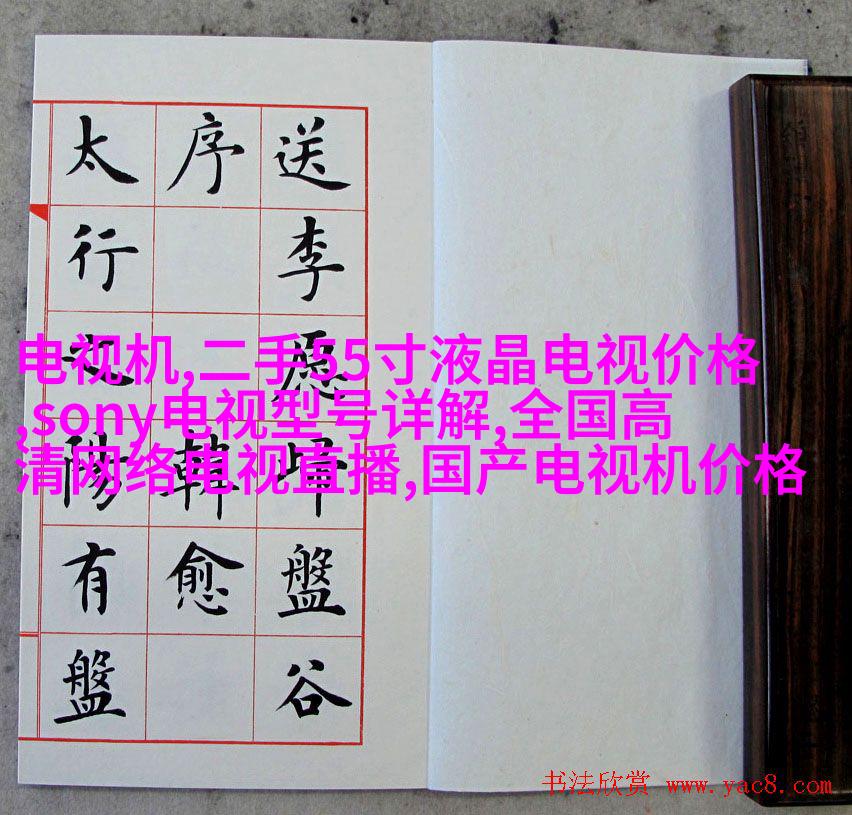 送李愿歸盤谷
序韓愈
太行之陽有盤
电视机,二手55寸液晶电视价格
,sony电视型号详解,全国高
清网络电视直播,国产电视机价格
书法欣赏 www.yac8.com